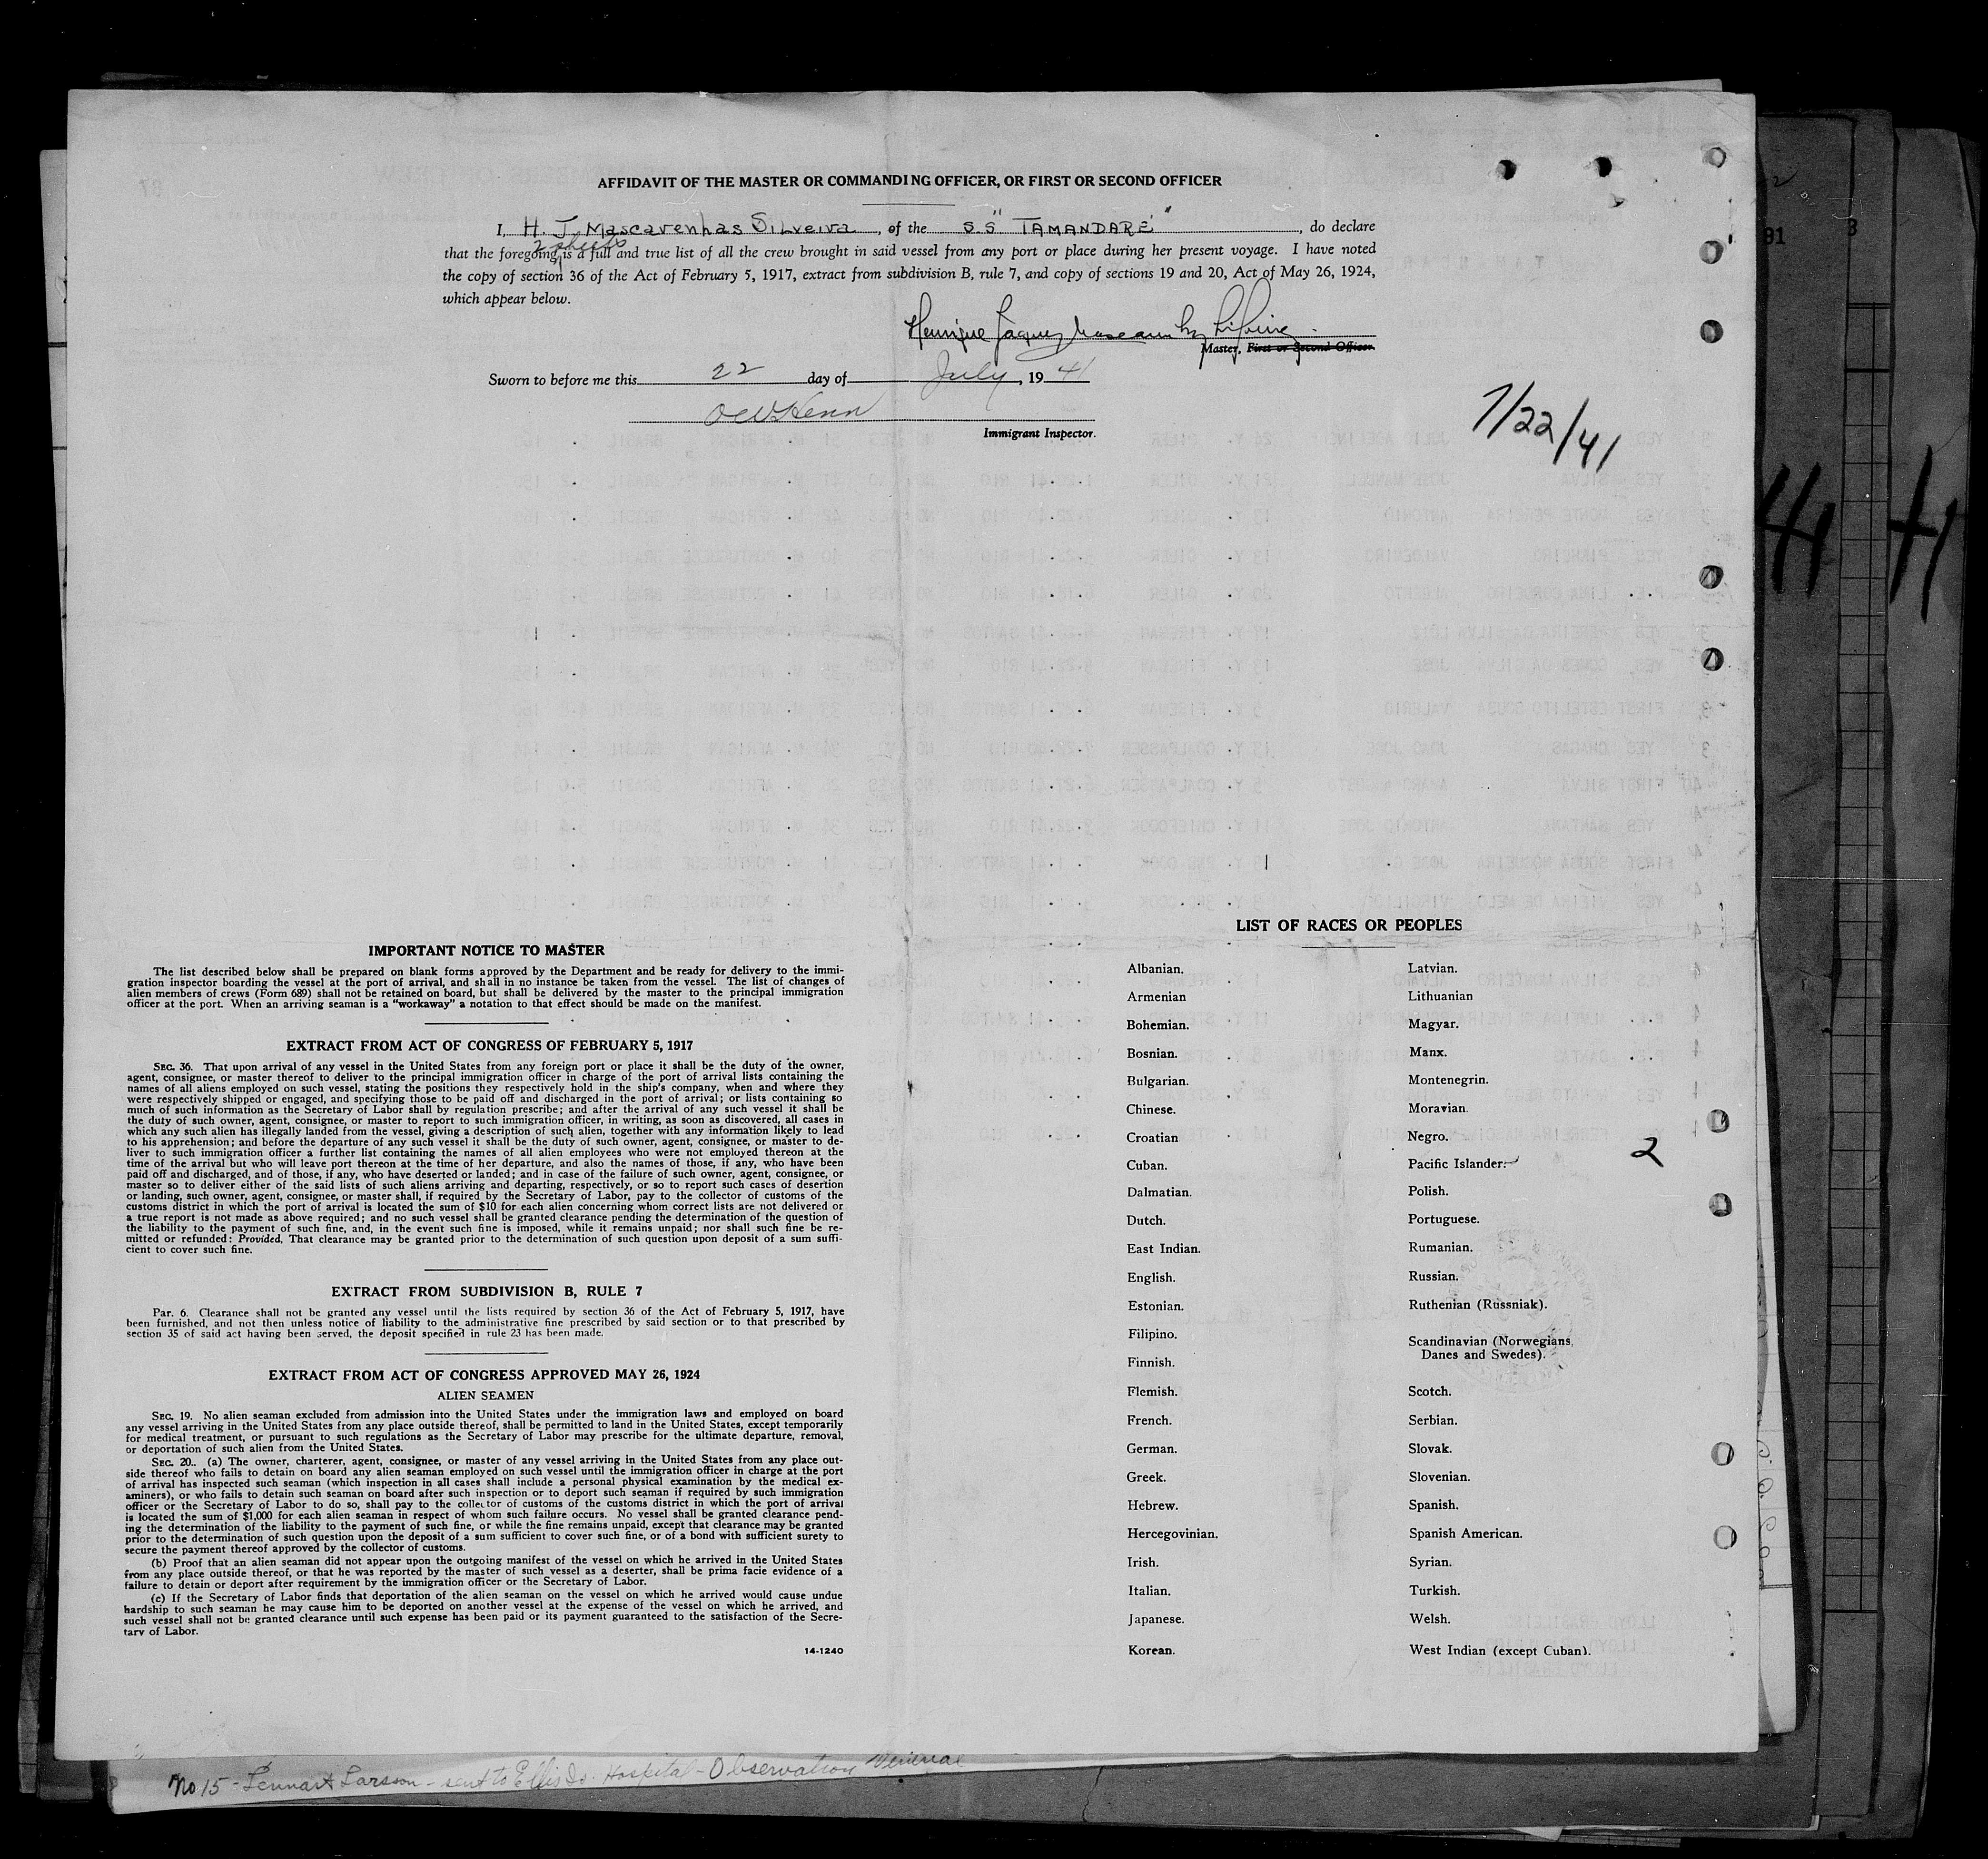 AFFIDAVIT OF THE MASTER OR COMMANDING OFFICER, OR FIRST OR SECOND OFFICER
I, H. J. Mascarenhas Silveira, of the S.S "TAMANDARÉ", do declare
2 sheets
that the foregoing is a full and true list of all the crew brought in said vessel from any port or place during her present voyage. I have noted
the copy of section 36 of the Act of February 5, 1917, extract from subdivision B, rule 7, and copy of sections 19 and 20, Act of May 26, 1924,
which appear below.
Henrique Jaques
Master, First or Second Officer.
Sworn to before me this 22 day of July, 1941
Immigrant Inspector.
7/22/41
91
3
41
41
IMPORTANT NOTICE TO MASTER
The list described below shall be prepared on blank forms approved by the Department and be ready for delivery to the immi-
gration inspector boarding the vessel at the port of arrival, and shall in no instance be taken from the vessel. The list of changes of
alien members of crews (Form 689) shall not be retained on board, but shall be delivered by the master to the principal immigration
officer at the port. When an arriving seaman is a "workaway" a notation to that effect should be made on the manifest.
EXTRACT FROM ACT OF CONGRESS OF FEBRUARY 5, 1917
SEC. 36. That upon arrival of any vessel in the United States from any foreign port or place it shall be the duty of the owner,
agent, consignee, or master thereof to deliver to the principal immigration officer in charge of the port of arrival lists containing the
names of all aliens employed on such vessel, stating the positions they respectively hold in the ship's company, when and where they
were respectively shipped or engaged, and specifying those to be paid off and discharged in the port of arrival; or lists containing so
much of such information as the Secretary of Labor shall by regulation prescribe; and after the arrival of any such vessel it shall be
the duty of such owner, agent, consignee, or master to report to such immigration officer, in writing, as soon as discovered, all cases in
which any such alien has illegally landed from the vessel, giving a description of such alien, together with any information likely to lead
to his apprehension; and before the departure of any such vessel it shall be the duty of such owner, agent, consignee, or master to de-
liver to such immigration officer a further list containing the names of all alien employees who were not employed thereon at the
time of the arrival but who will leave port thereon at the time of her departure, and also the names of those, if any, who have been
paid off and discharged, and of those, if any, who have deserted or landed; and in case of the failure of such owner, agent, consignee, or
master so to deliver either of the said lists of such aliens arriving and departing, respectively, or so to report such cases of desertion
or landing, such owner, agent, consignee, or master shall, if required by the Secretary of Labor, pay to the collector of customs of the
customs district in which the port of arrival is located the sum of $10 for each alien concerning whom correct lists are not delivered or
a true report is not made as above required; and no such vessel shall be granted clearance pending the determination of the question of
the liability to the payment of such fine, and, in the event such fine is imposed, while it remains unpaid; nor shall such fine be re-
mitted or refunded: Provided, That clearance may be granted prior to the determination of such question upon deposit of a sum suffi-
cient to cover such fine.
EXTRACT FROM SUBDIVISION B, RULE 7
Par. 6. Clearance shall not be granted any vessel until the lists required by section 36 of the Act of February 5, 1917, have
been furnished, and not then unless notice of liability to the administrative fine prescribed by said section or to that prescribed by
section 35 of said act having been served, the deposit specified in rule 23 has been made.
EXTRACT FROM ACT OF CONGRESS APPROVED MAY 26, 1924
ALIEN SEAMEN
SEC. 19. No alien seaman excluded from admission into the United States under the immigration laws and employed on board
any vessel arriving in the United States from any place outside thereof, shall be permitted to land in the United States, except temporarily
for medical treatment, or pursuant to such regulations as the Secretary of Labor may prescribe for the ultimate departure, removal,
or deportation of such alien from the United States.
SEC. 20.. (a) The owner, charterer, agent, consignee, or master of any vessel arriving in the United States from any place out-
side thereof who fails to detain on board any alien seaman employed on such vessel until the immigration officer in charge at the port
of arrival has inspected such seaman (which inspection in all cases shall include a personal physical examination by the medical ex-
aminers), or who fails to detain such seaman on board after such inspection or to deport such seaman if required by such immigration
officer or the Secretary of Labor to do so, shall pay to the collector of customs of the customs district in which the port of arrival
is located the sum of $1,000 for each alien seaman in respect of whom such failure occurs. No vessel shall be granted clearance pend-
ing the determination of the liability to the payment of such fine, or while the fine remains unpaid, except that clearance may be granted
prior to the determination of such question upon the deposit of a sum sufficient to cover such fine, or of a bond with sufficient surety to
secure the payment thereof approved by the collector of customs.
(b) Proof that an alien seaman did not appear upon the outgoing manifest of the vessel on which he arrived in the United States
from any place outside thereof, or that he was reported by the master of such vessel as a deserter, shall be prima facie evidence of a
failure to detain or deport after requirement by the immigration officer or the Secretary of Labor.
(c) If the Secretary of Labor finds that deportation of the alien seaman on the vessel on which he arrived would cause undue
hardship to such seaman he may cause him to be deported on another vessel at the expense of the vessel on which he arrived, and
such vessel shall not be granted clearance until such expense has been paid or its payment guaranteed to the satisfaction of the Secre-
tary of Labor.
14-1240
LIST OF RACES OR PEOPLES
Albanian.
Armenian
Bohemian.
Bosnian.
Bulgarian.
Chinese.
Croatian
Cuban.
Dalmatian.
Dutch.
East Indian.
English.
Estonian.
Filipino.
Finnish.
Flemish.
French.
German.
Greek.
Hebrew.
Hercegovinian.
Irish.
Italian.
Japanese.
Korean.
Latvian.
Lithuanian
Magyar.
Manx.
Montenegrin.
Moravian.
Negro.
Pacific Islander.
Polish.
Portuguese.
Rumanian.
Russian.
Ruthenian (Russniak).
Scandinavian (Norwegians,
Danes and Swedes).
Scotch.
Serbian.
Slovak.
Slovenian.
Spanish.
Spanish American.
Syrian.
Turkish.
Welsh.
West Indian (except Cuban).
2
No 15 - Lennart Larsson - sent to Ellis Is. Hospital - Observation Venereal